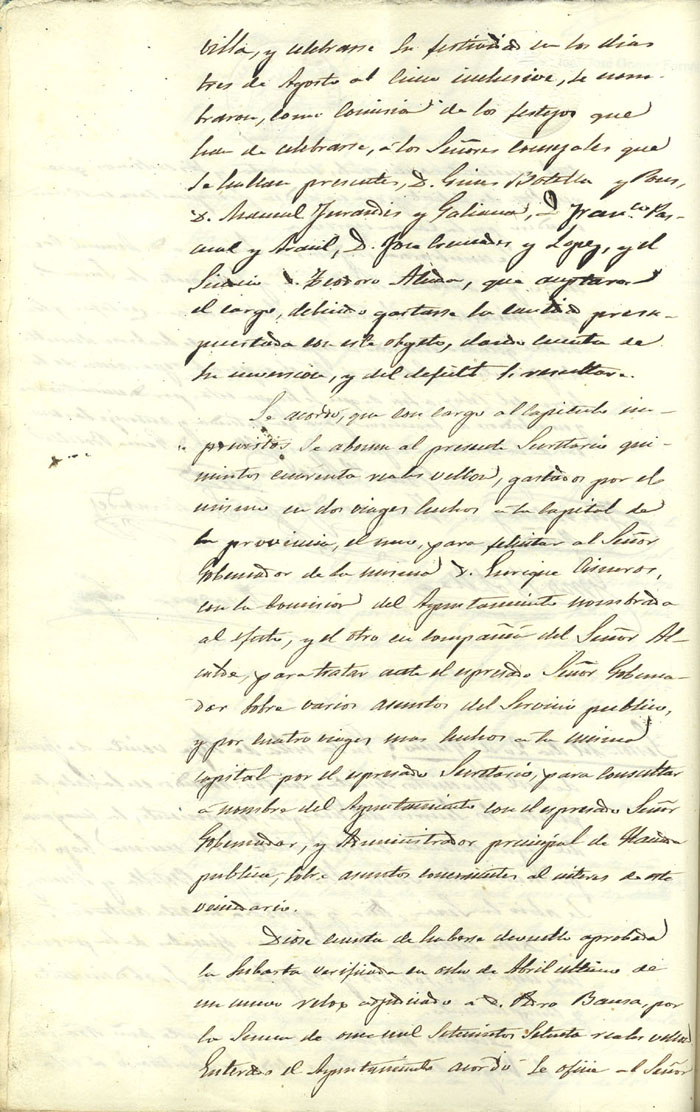 villa, y celebrarse su festividad en los dias
tres de Agosto al cinco inclusive, se nom-
braron, como Comision de los festejos que
han de celebrarse, a los Señores concejales que
se hallan presentes, D. Gines Botella y Pons,
D. Manuel Jurandis y Galiana, D. Franco. Pas-
cual y, D. Jose y Lopez, y el
Sindico D. Teodoro Alcaraz, que aceptaron
el cargo, debiendo gastarse la cantidad presu-
puestada con este objeto, dando cuenta de
su inversion, y del deficit si resultare.
Se acordó, que con cargo al capitulo im-
previstos se abonen al presente Secretario qui-
nientos cuarenta reales vellon, gastados por el
mismo en dos viages hechos a la capital de
la provincia, el uno, para felicitar al Señor
Gobernador de la misma D. Enrique Cisneros,
con la Comision del Ayuntamiento nombrada
al efecto, y el otro en compañia del Señor Al-
calde, para tratar ante el espresado Señor Goberna-
dor sobre varios asuntos del Servicio publico,
y por cuatro viages mas hechos a la misma
capital por el espresado Secretario, para consultar
a nombre del Ayuntamiento con el espresado Señor
Gobernador, y Administrador principal de Hacienda
publica, sobre asuntos concernientes al interes de este
vecindario.
Diose cuenta de haberse devuelto aprobada
la Subasta verificada en ocho de Abril ultimo de
un nuevo relox adjudicado a D. Pedro Bausa, por
la Suma de once mil Setecientos Setenta reales vellon
Enterado el Ayuntamiento acordó se oficie al Señor